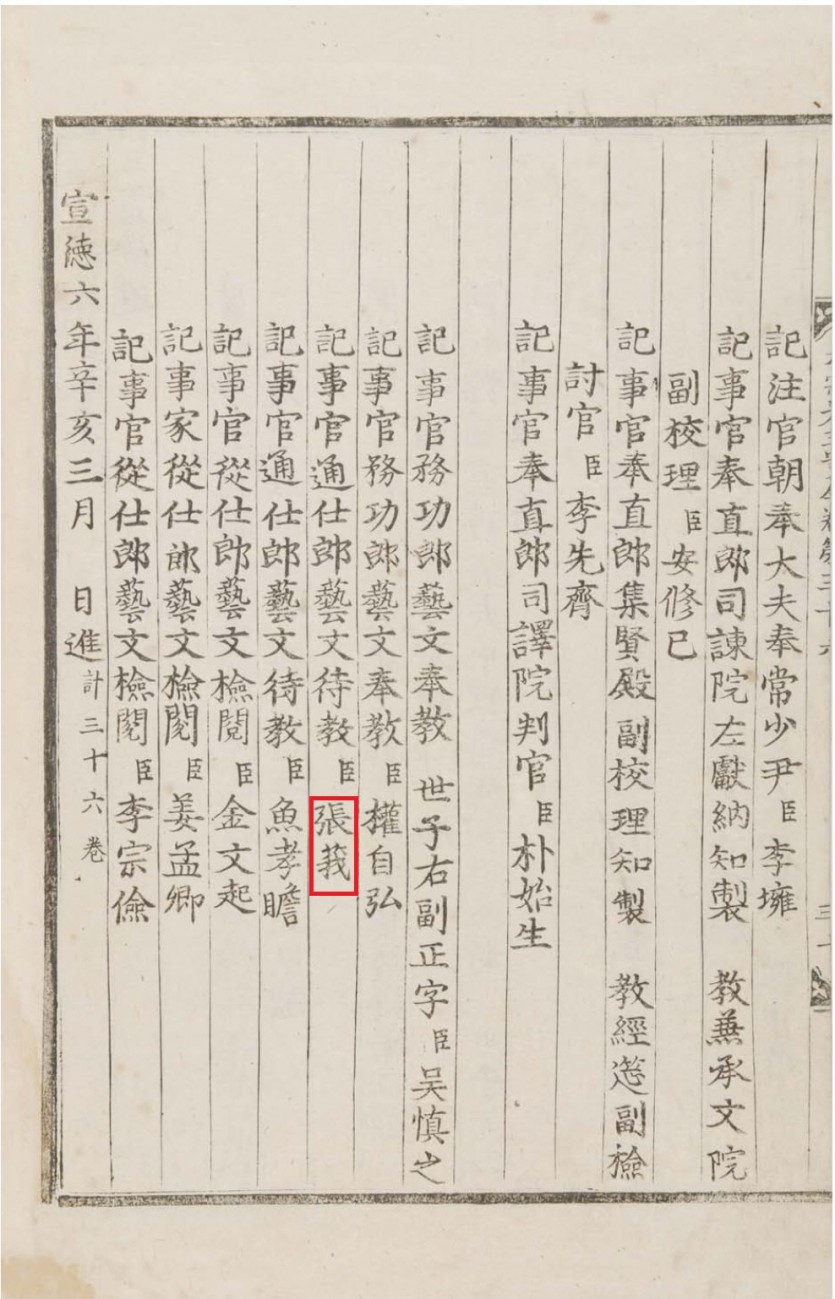 記注官朝奉大夫奉常少尹臣李擁
記事官奉直郎司諫院左獻納知製 教兼承文院
副校理臣安修己
記事官奉直郎集賢殿副校理知製 教經筵副檢
討官臣李先齊
記事官奉直郎司譯院判官臣朴始生
記事官務功郎藝文奉教 世子右副正字臣吴慎之
記事官務功郎藝文奉教臣權自弘
記事官通仕郎藝文待教臣張莪
記事官通仕郎藝文待教臣魚孝瞻
記事官從仕郎藝文檢閱臣金文起
記事家從仕郎藝文檢閱臣姜孟卿
記事官從仕郎藝文檢閱臣李宗儉
宣德六年辛亥三月 日進計三十六卷